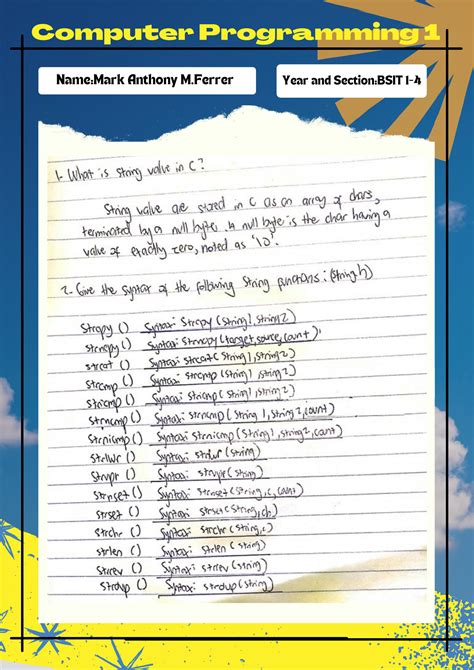 Computer Programming 1
Name:Mark Anthony M.Ferrer
Year and Section:BSIT 1-4
1. What is string value in C?
String value are stored in C as an array of chars,
terminated by a null byte. A null byte is the char having a
value of exactly zero, noted as '\0'.
2. Give the syntax of the following String functions: (string.h)
Strcpy () Syntax: Strcpy (string1, string2)
strncpy () Syntax: Strncpy (target, source, count)
strcat () Syntax: strcat (string1, string2)
strcmp () Syntax: strcmp (string1, string2)
stricmp () Syntax: stricmp (string1, string2)
strncmp () Syntax: strncmp (string1, string2, count)
Strnicmp () Syntax: strnicmp (string1, string2, count)
StrlWr () Syntax: strlwr (string)
Strupr () Syntax: strupr (string)
Strnset () Syntax: strnset (string, c, count)
strset () Syntax: strset (string, ch)
strchr () Syntax: strchr (string, c)
strlen () Syntax: strlen (string)
strrev () Syntax: strrev (string)
strdup () Syntax: strdup (string)